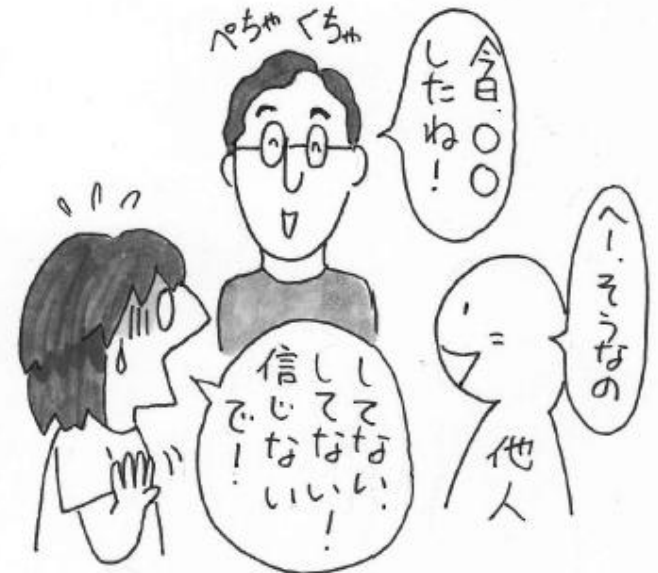 ぺちゃくちゃ
今日、○○
したね!
へー、そうなの
してない、
してない!
信じない
で!
他人